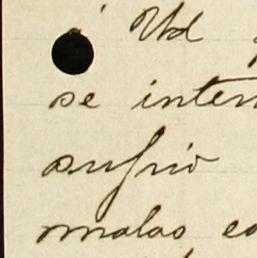 Ud
se inter
sufrio
malas co